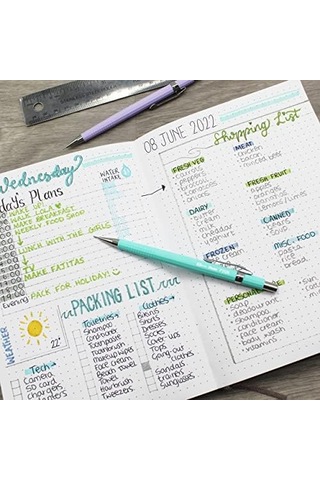 Wednesday
08 JUNE 2022
Shopping List
WATER
INTAKE
Plans
MAKE BREAKFAST
WEEKLY FOOD SHOP
LUNCH WITH THE GIRLS
MAKE FATITAS
PACK FOR HOLIDAY!
Evening
WEATHER
22°
PACKING LIST
Toiletries
Shampoo
Conditioner
Toothpaste
Toothbrush
Makeup wipes
Face Cream
Beach Towel
Towel
Hairbrush
Tweezers
Clothes
Bikinis
Shorts
Dresses
Socks
Cover-ups
Tops
Going out
clothes
Sandals
trainers
Sunglasses
Tech
Camera
SD card
chargers
FRESH VEG
carrots
peppers
broccoli
potatoes
onions
DAIRY
milk
cheddar
yoghurt
cream
FROZEN
MEAT
chicken
bacon
minced beef
FRESH FRUIT
CANNED
soup
MISC. FOOD
rice
bread
soap
deodorant
shampoo
conditioner
face cream
body wash
vitamins